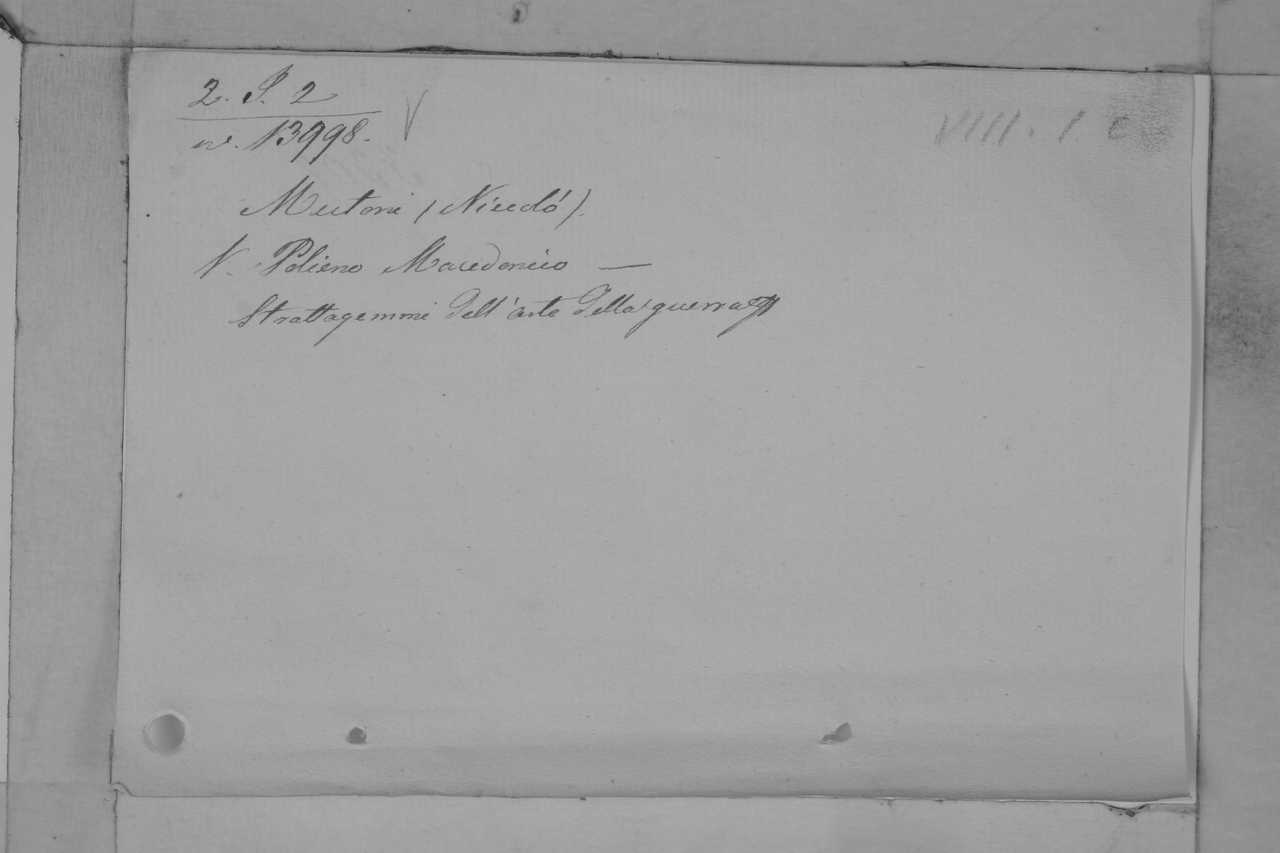 2. S. 2
V
VIII. 1
n. 13998.
Mutoni (Niccoló).
V. Polieno Macedonico —
Strattagemmi dell'arte della guerra